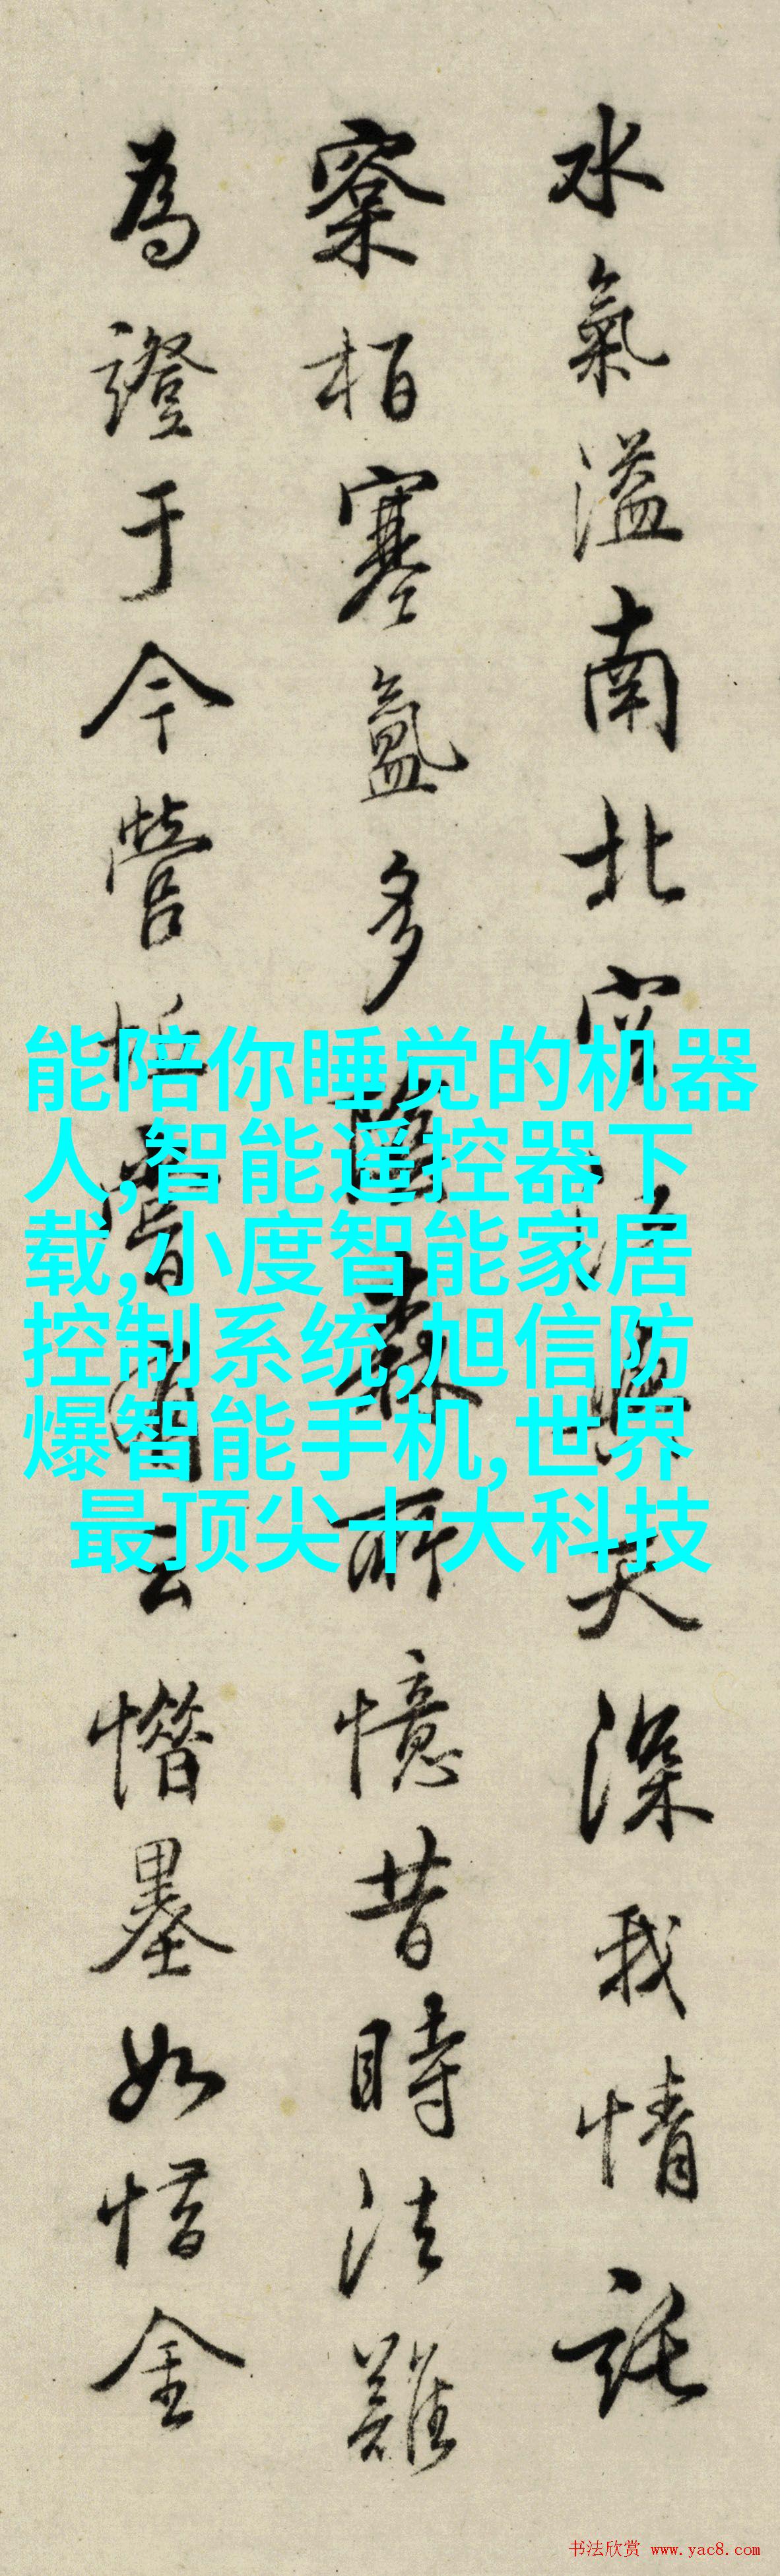 水氣溢南北宗 天深我情託
窠栢寒氲多 森所憶昔時法難
為證于今營 云惜墨如惜金
能陪你睡觉的机器
人,智能遥控器下
载,小度智能家居
控制系统,旭信防
爆智能手机,世界
最顶尖十大科技
书法欣赏 www.yac8.com